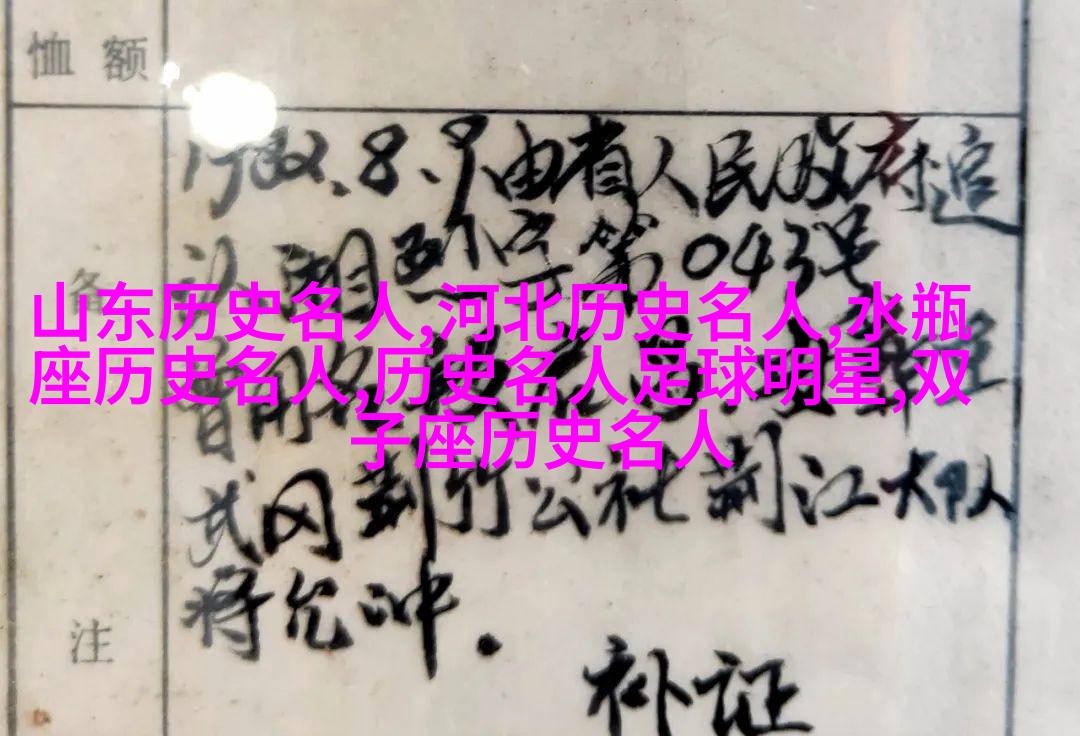 恤额
1982.8.9由省人民政府追
认.湘烈字第043号
备
山东历史名人,河北历史名人,水瓶
座历史名人,历史名人足球明星,双
子座历史名人
武冈荆竹公社荆江大队
蒋允冲.
注
补证